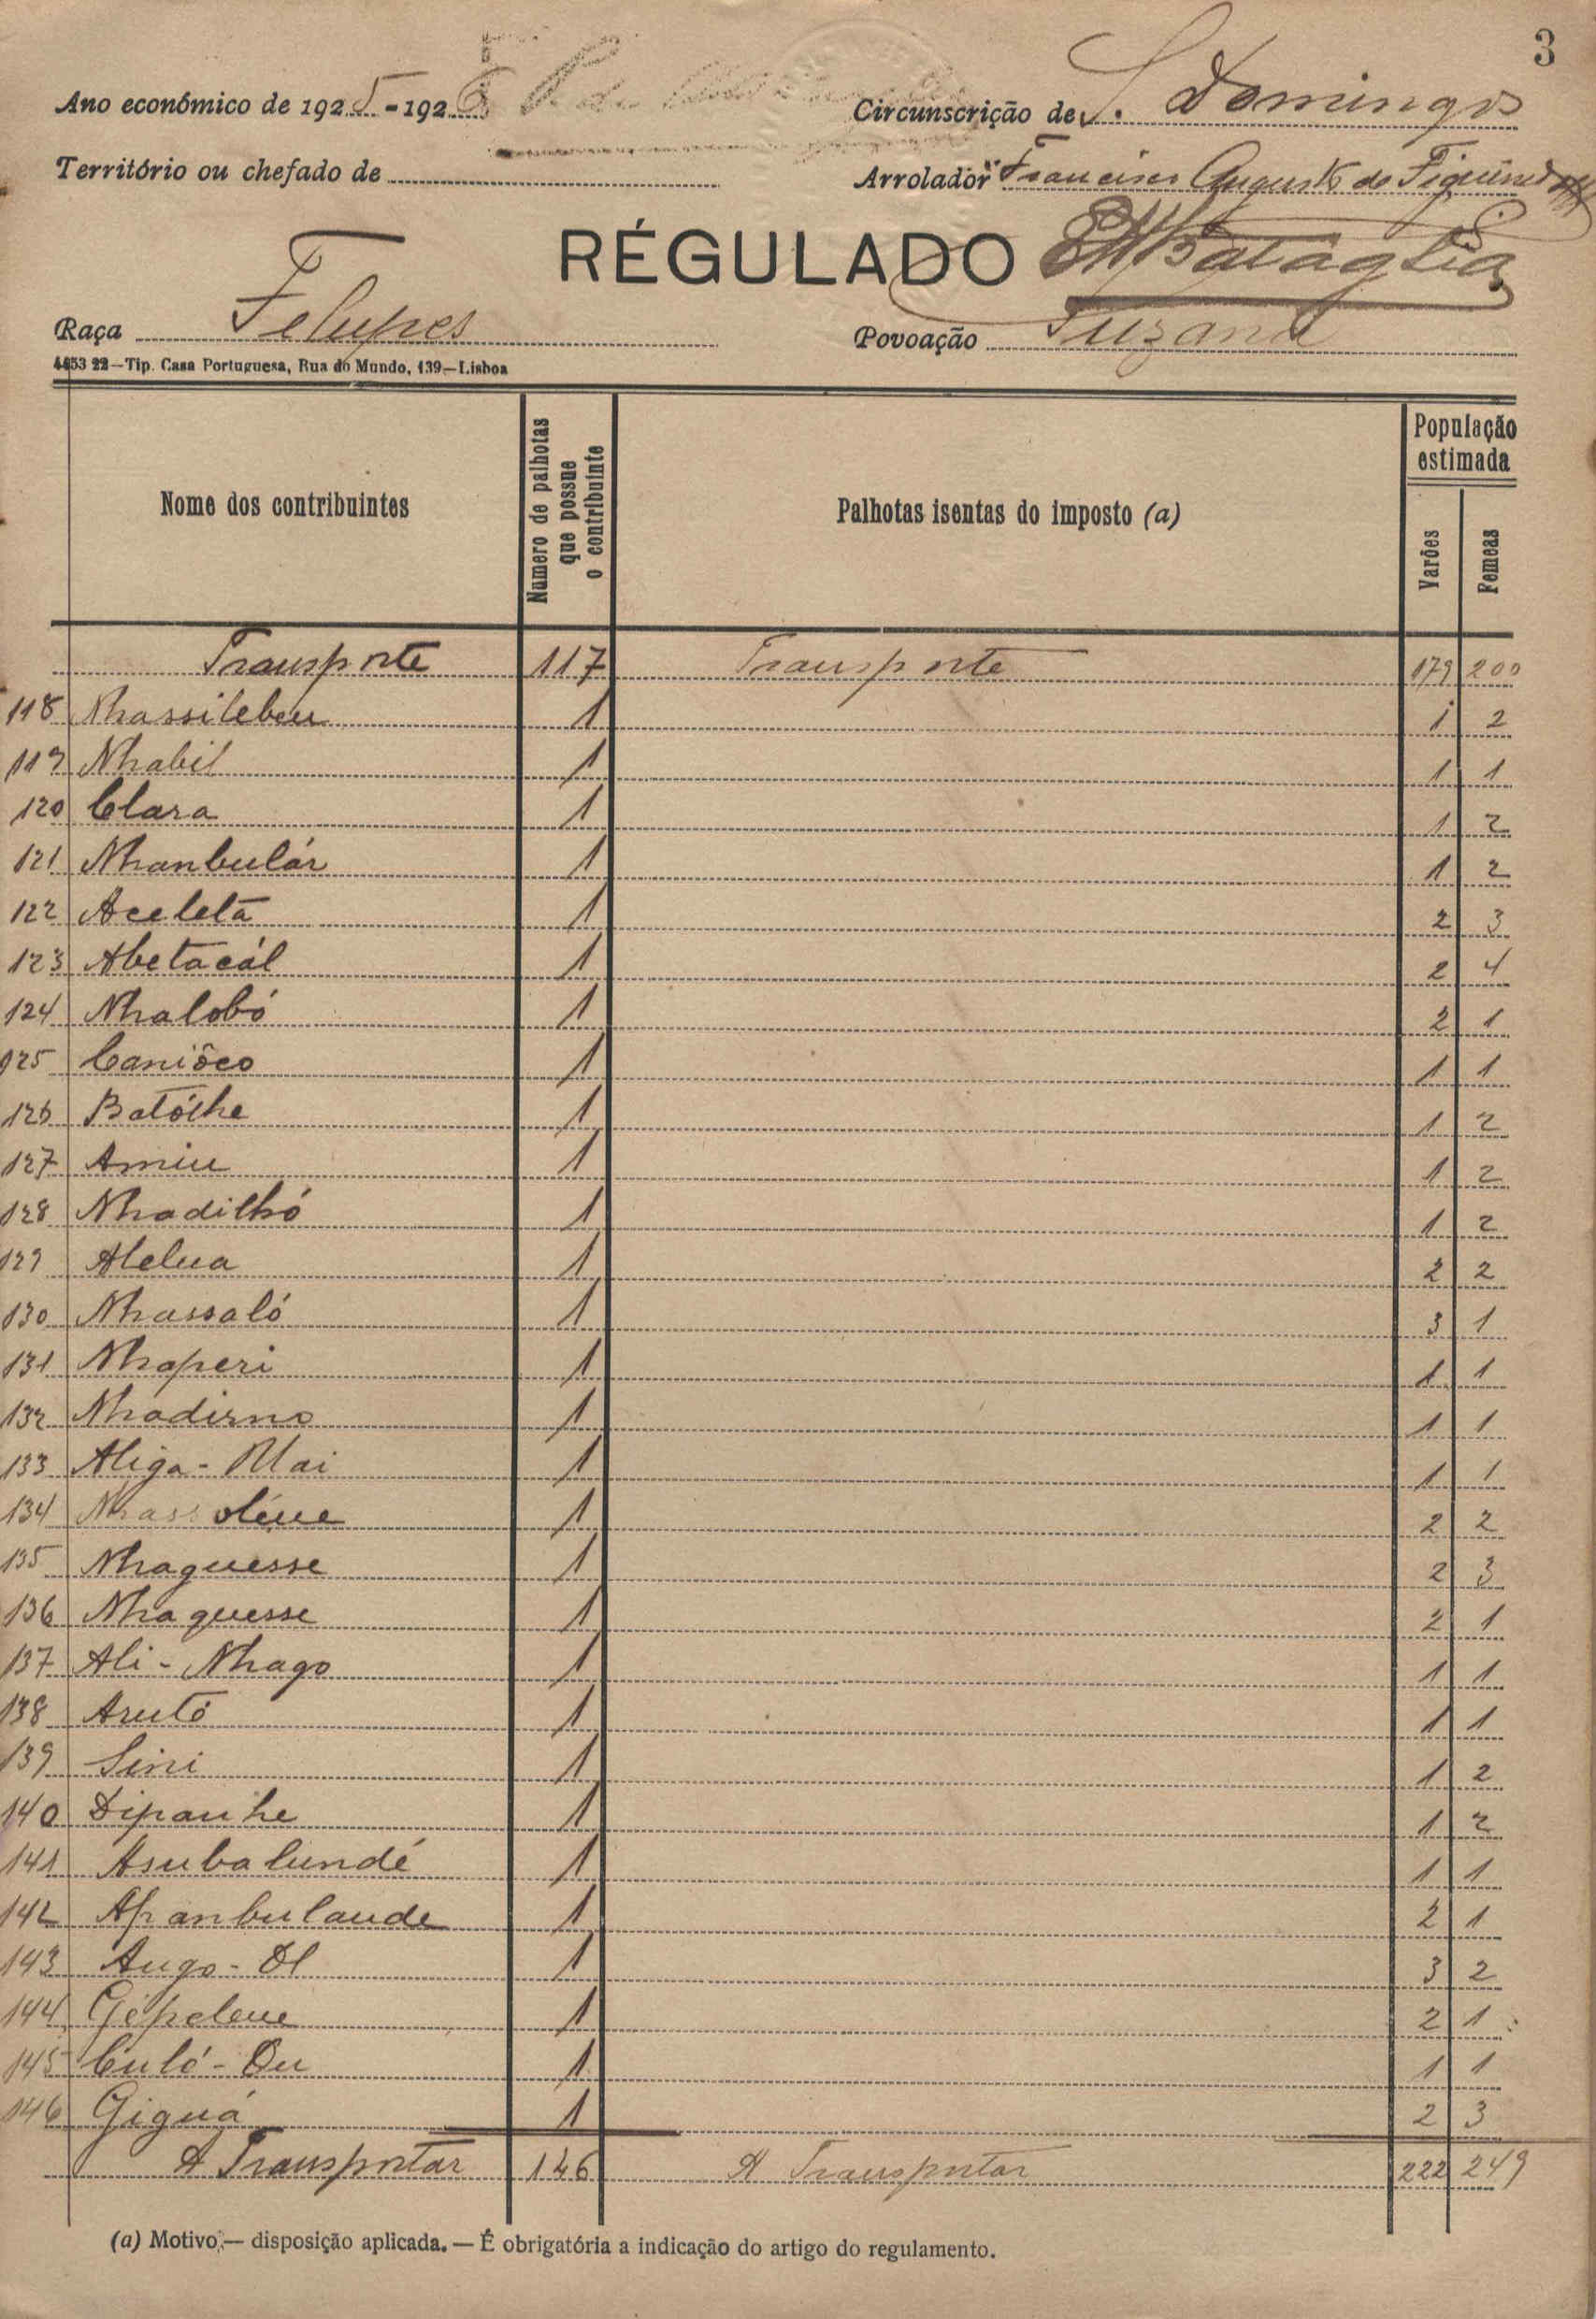 3
Ano económico de 1925-1926
Circunscrição de S. Domingos
Território ou chefado de
Arrolador Francisco Augusto de Figueiredo
RÉGULADO
Raça Felupes
Povoação Suzana
4453 22—Tip. Casa Portuguesa, Rua do Mundo, 139—Lisboa
Nome dos contribuintes
Numero de palhotas que possue o contribuinte
Palhotas isentas do imposto (a)
População estimada
Varões
Femeas
Transporte 117 Transporte 179 200
118 Nhassilebeu 1 1 2
119 Nhabil 1 1 1
120 Clara 1 1 2
121 Nhanbulár 1 1 2
122 Aceletá 1 2 3
123 Abetacál 1 2 4
124 Nhalobó 1 2 1
125 Caniôco 1 1 1
126 Batólhe 1 1 2
127 Amiu 1 1 2
128 Nhadilhó 1 1 2
129 Alelua 1 2 2
130 Nhassaló 1 3 1
131 Nhaperi 1 1 1
132 Nhadirno 1 1 1
133 Aliga-Mai 1 1 1
134 Nhassoléue 1 2 2
135 Nhaguesse 1 2 3
136 Nhaguesse 1 2 1
137 Ali-Nhago 1 1 1
138 Arutó 1 1 1
139 Sini 1 1 2
140 Dipanhe 1 1 2
141 Asubalundé 1 1 1
142 Apanbulaude 1 2 1
143 Augo-Dl 1 3 2
144 Gépeleue 1 2 1
145 Culó-Ou 1 1 1
146 Giguá 1 2 3
A Transportar 146 A Transportar 222 249
(a) Motivo,— disposição aplicada.— É obrigatória a indicação do artigo do regulamento.